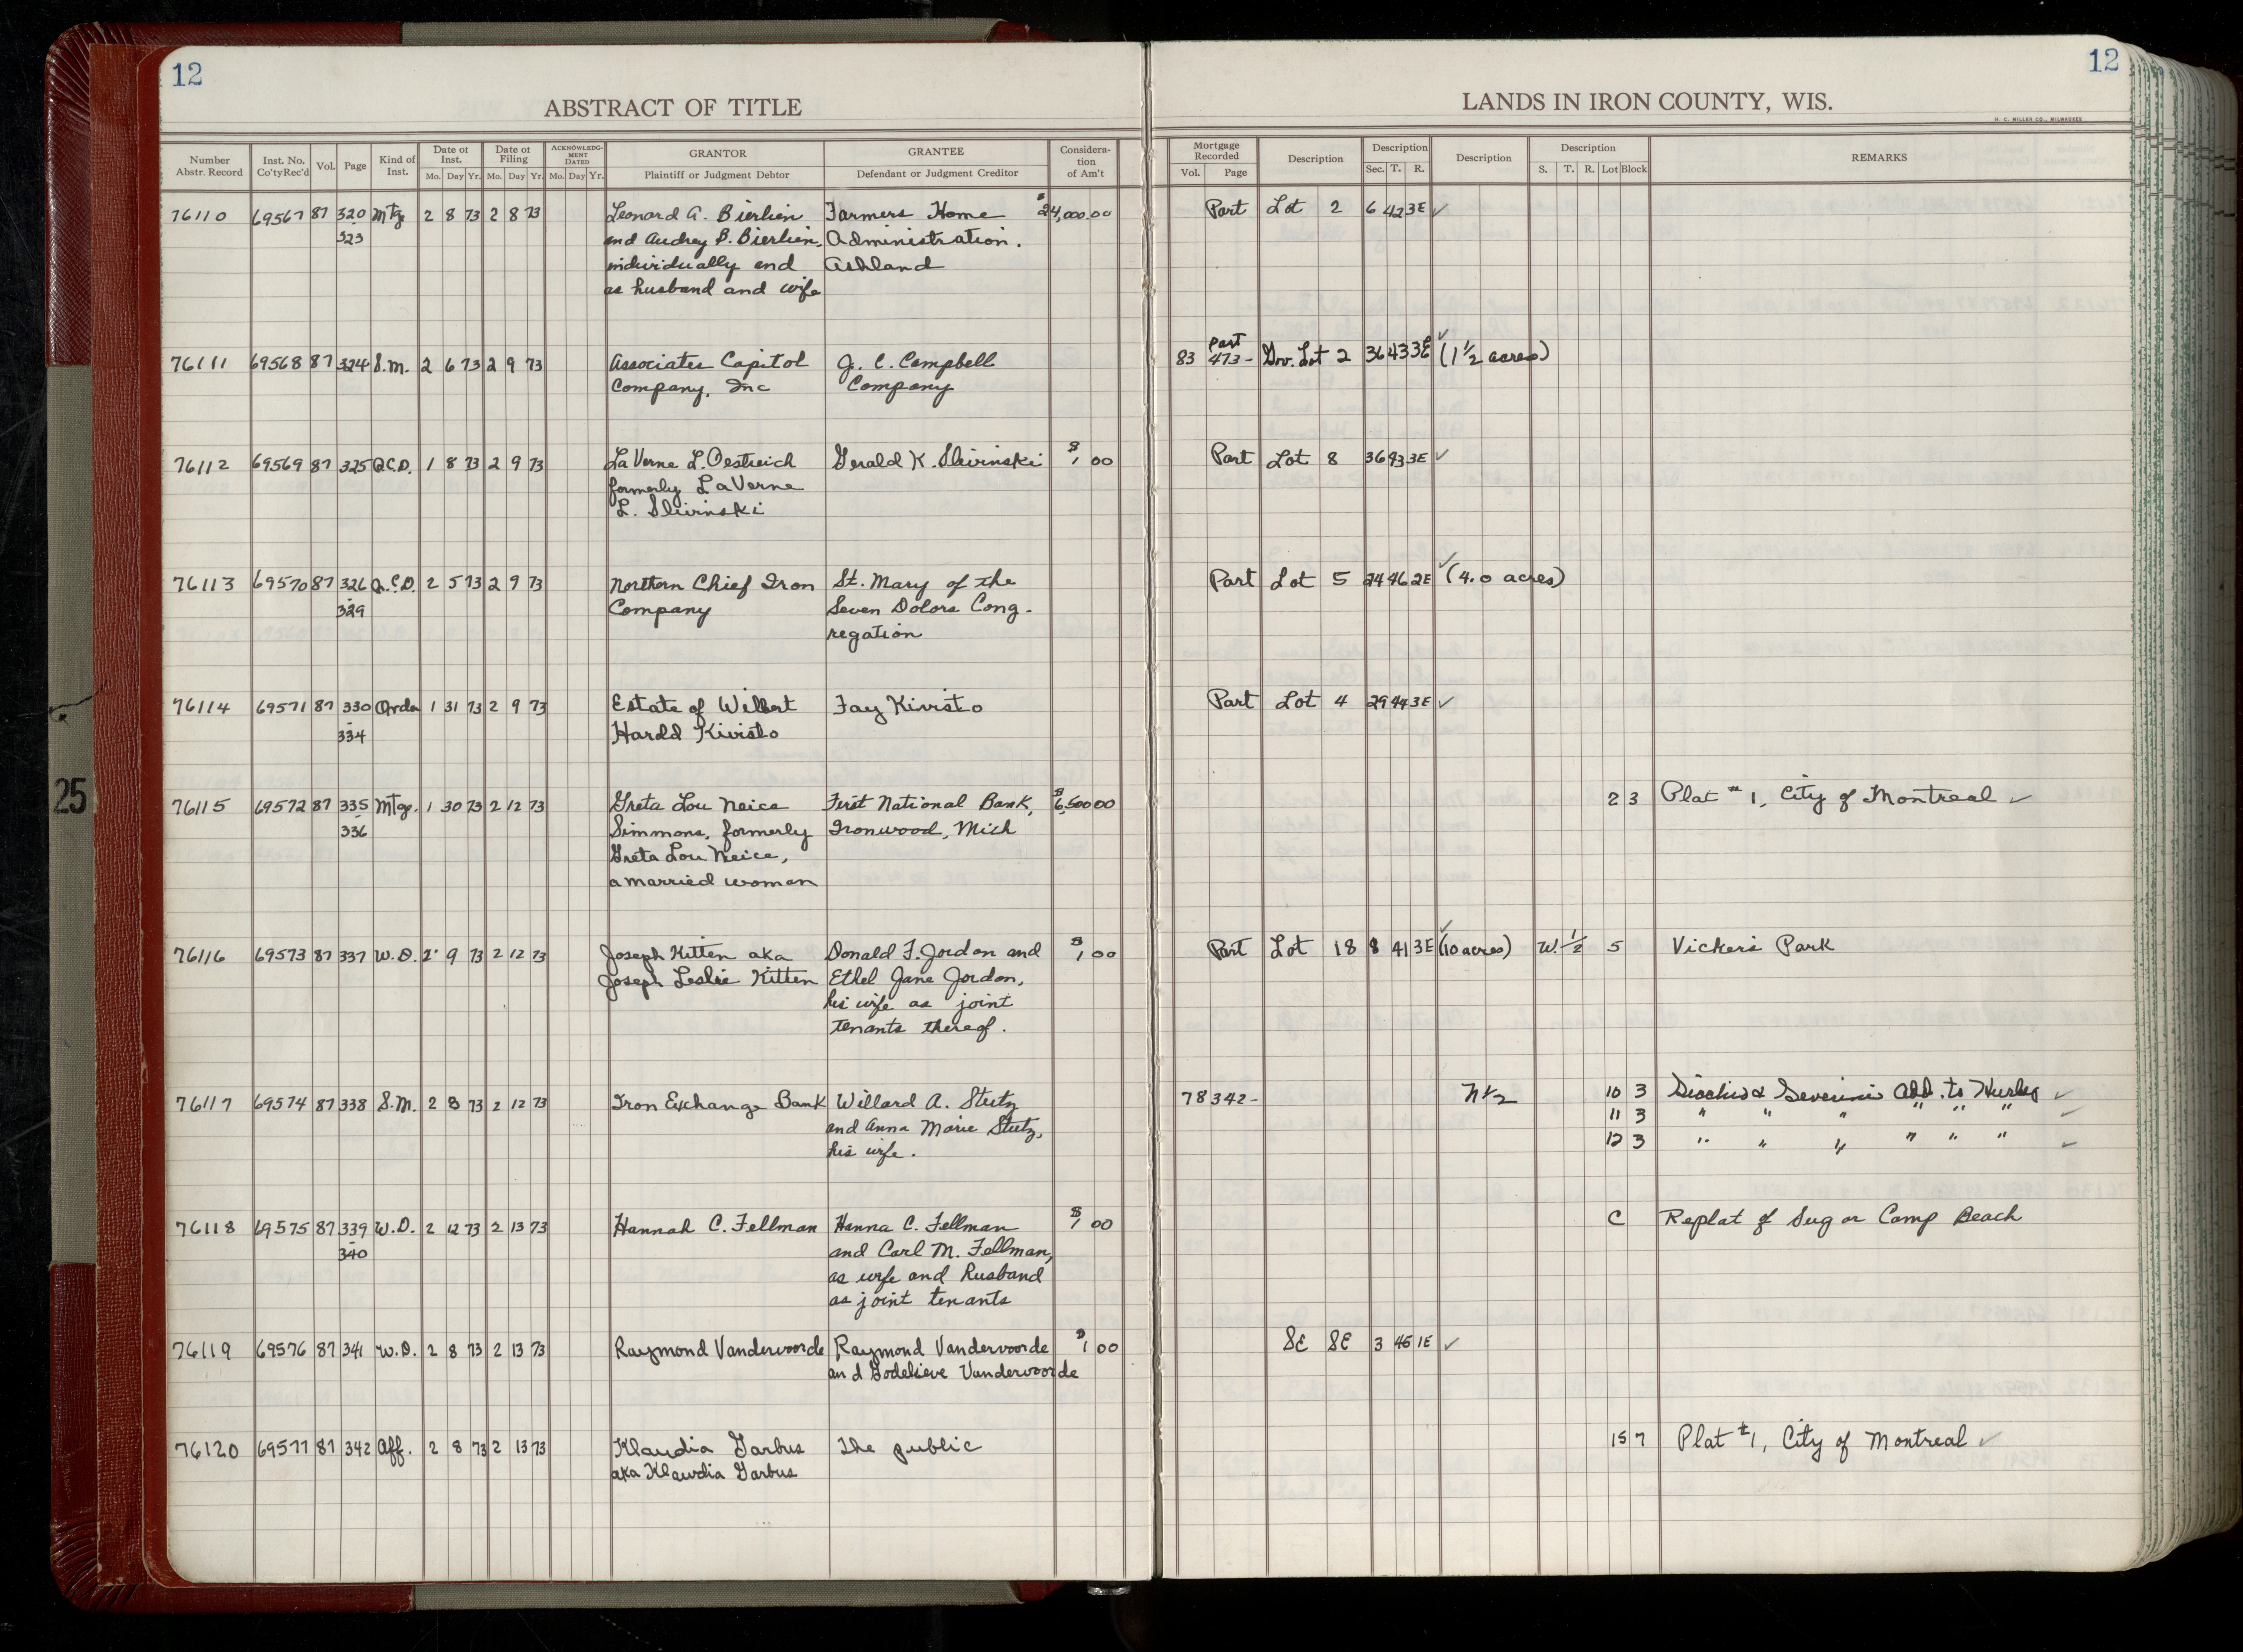 12
ABSTRACT OF TITLE
Number Abstr. Record Inst. No. Co'ty Rec'd Vol. Page Kind of Inst. Date of Inst. Mo. Day Yr. Date of Filing Mo. Day Yr. ACKNOWLEDGMENT DATED Mo. Day Yr. GRANTOR Plaintiff or Judgment Debtor GRANTEE Defendant or Judgment Creditor Consideration of Am't
12
LANDS IN IRON COUNTY, WIS.
H. C. MILLER CO., MILWAUKEE
Mortgage Recorded Vol. Page Description Description Sec. T. R. Description Description S. T. R. Lot Block REMARKS
76110 69567 87 320 Mtg 2 8 73 2 8 73 Leonard A. Bierlien Farmers Home $24,000.00 Part Lot 2 6 42 3E ✓
- 323 and Audrey B. Bierlien, Administration.
individually and Ashland
as husband and wife
76111 69568 87 324 S.M. 2 6 73 2 9 73 Associates Capitol J. C. Campbell 83 473- Part Gov. Lot 2 36 43 3E ✓ (1 1/2 acres)
Company, Inc Company
76112 69569 87 325 Q.C.D. 1 8 73 2 9 73 LaVerne L. Oestreich Gerald K. Slivinski $1 00 Part Lot 8 36 43 3E ✓
formerly LaVerne
L. Slivinski
76113 69570 87 326 Q.C.D. 2 5 73 2 9 73 Northern Chief Iron St. Mary of the Part Lot 5 24 46 2E ✓ (4.0 acres)
- 329 Company Seven Dolors Cong-
regation
76114 69571 87 330 Order 1 31 73 2 9 73 Estate of Wilbert Fay Kivisto Part Lot 4 29 44 3E ✓
- 334 Harold Kivisto
76115 69572 87 335 Mtg. 1 30 73 2 12 73 Greta Lou Neice First National Bank, $6,500 00 2 3 Plat #1, City of Montreal ✓
- 336 Simmons, formerly Ironwood, Mich
Greta Lou Neice,
a married woman
76116 69573 87 337 W.D. 2 9 73 2 12 73 Joseph Kitten aka Donald F. Jordon and $1 00 Part Lot 18 8 41 3E ✓ (10 acres) W. 1/2 5 Vickers Park
Joseph Leslie Kitten Ethel Jane Jordon,
his wife as joint
tenants thereof.
76117 69574 87 338 S.M. 2 8 73 2 12 73 Iron Exchange Bank Willard A. Stutz 78 342- N 1/2 10 3 & Severinis Add. to Hurley ✓
and Anna Marie Stutz, 11 3 " " " " " " ✓
his wife. 12 3 " " " " " " ✓
76118 69575 87 339 W.D. 2 12 73 2 13 73 Hannah C. Fellman Hanna C. Fellman $1 00 C Replat of Sugar Camp Beach
- 340 and Carl M. Fellman,
as wife and Rusband
as joint tenants
76119 69576 87 341 W.D. 2 8 73 2 13 73 Raymond Vandervoorde Raymond Vandervoorde $1 00 SE SE 3 46 1E ✓
and Godelieve Vandervoorde
76120 69577 87 342 Aff. 2 8 73 2 13 73 Klaudia Garbus The public 15 7 Plat #1, City of Montreal ✓
aka Klawdia Garbus
25